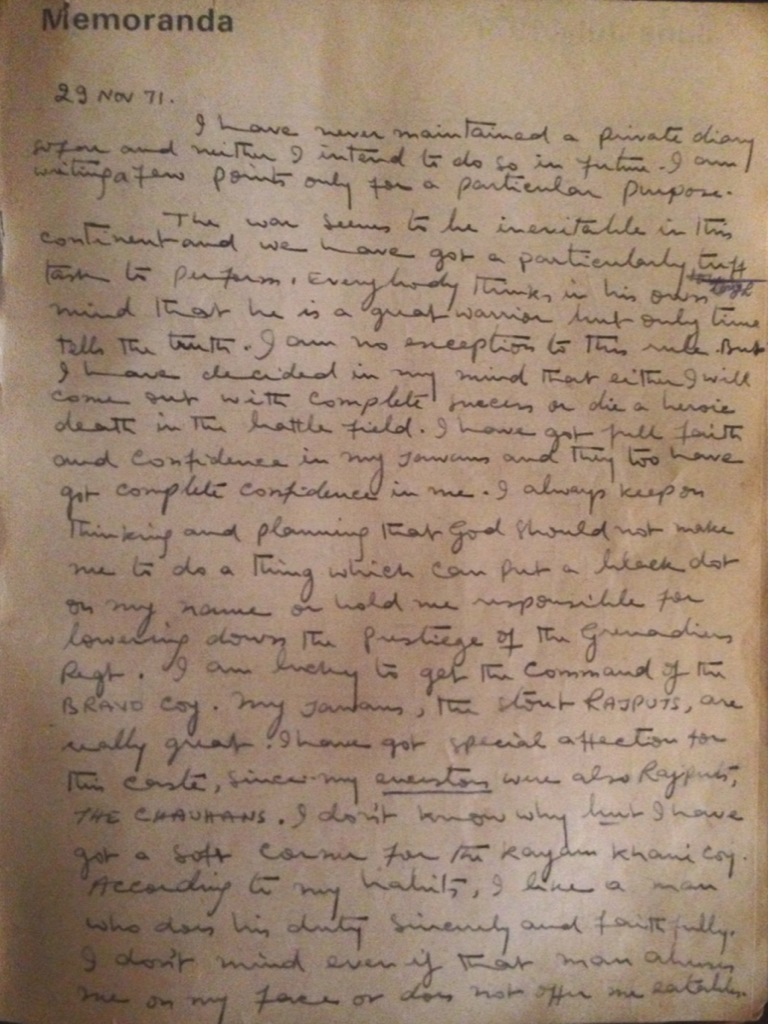 Memoranda
29 NOV 71.
I have never maintained a private diary
before and neither I intend to do so in future. I am
writing a few points only for a particular purpose.
The war seems to be inevitable in this
continent and we have got a particularly tuff
tough
task to perform. Everybody thinks in his own
mind that he is a great warrior but only time
tells the truth. I am no exception to this rule. But
I have decided in my mind that either I will
come out with complete success or die a heroic
death in the battle field. I have got full faith
and confidence in my Jawans and they too have
got complete confidence in me. I always keep on
thinking and planning that God should not make
me to do a thing which can put a black dot
on my name or hold me responsible for
lowering down the prestiege of the Grenadiers
Regt. I am lucky to get the command of the
BRAVO Coy. My Jawans, the stout RAJPUTS, are
really great. I have got special affection for
this caste, since my encestors were also Rajputs,
THE CHAUHANS. I don't know why but I have
got a soft corner for the Kayam Khani Coy.
According to my habits, I like a man
who does his duty sincerely and faithfully.
I don't mind even if that man abuses
me on my face or does not offer me eatables.